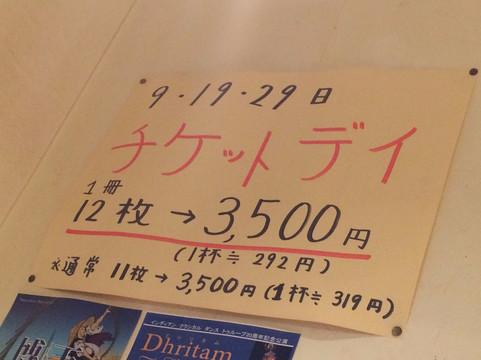 9・19・29日
チケットデイ
1冊
12枚→3,500円
(1杯≒292円)
※通常 11枚→3,500円(1杯≒319円)
インディアン クラシカル ダンス トゥループ20周年記念公演
Dhritam